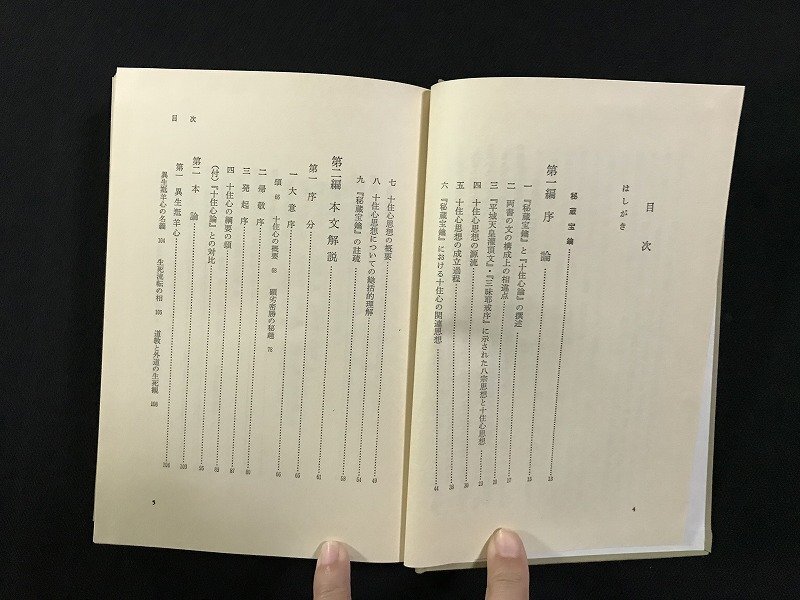 目次
はしがき
秘蔵宝鑰
第一編 序論
一 『秘蔵宝鑰』と『十住心論』の撰述
二 両書の文の構成上の相違点
三 『平城天皇灌頂文』・『三昧耶戒序』に示された八宗思想と十住心思想
四 十住心思想の源流
五 十住心思想の成立過程
六 『秘蔵宝鑰』における十住心の関連思想
4
七 十住心思想の概要
八 十住心思想についての総括的理解
九 『秘蔵宝鑰』の註疏
第二編 本文解説
第一 序分
一 大意序
頌 十住心の概要 68 顕劣密勝の秘趣 78
二 帰敬序
三 発起序
四 十住心の綱要の頌
(付)『十住心論』との対比
第二 本論
第一 異生羝羊心
異生羝羊心の名義 104 生死流転の相 106 道教と外道の生死観 108
目次
5